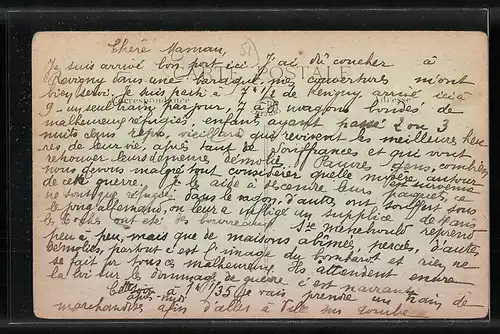 Chère Maman,
Je suis arrivé bon port ici J'ai dû coucher à
Revigny dans une baraque, mes couvertures m'ont
bien servi. Je suis parti à 7h 1/2 de Revigny arrivé ici à
CARTE POSTALE
Correspondance
Adresse
9 - un seul train par jour, 7 à 8 wagons bondés de
malheureux réfugiés, enfants ayant passé 2 ou 3
nuits sans repos, vieillards qui revivent les meilleures heu
res de leur vie, après tant de souffrances, et qui vont
retrouver leurs demeures démolies. Pauvres gens, combien
nous devons malgré tout considérer quelle misère autour
de cette guerre. Je les aide à descendre leurs paquets, ce
ne sont que réfugiés dans le wagon, d'autres ont souffert sous
le joug allemand, on leur a infligé du supplice de 4 ans
les Boches ont été des bourreaux. Ste Menehould reprend
peu à peu, mais que de maisons abimées, percées, d'autres
démolies, partout c'est l'image du bonheur et rien ne
se fait pour tous ces malheureux. Ils attendent encore
la loi sur le dommage de guerre c'est navrant
Cette après-midi à 1h 35 je vais prendre un train de
marchandises afin d'aller à Ville sur Tourbe